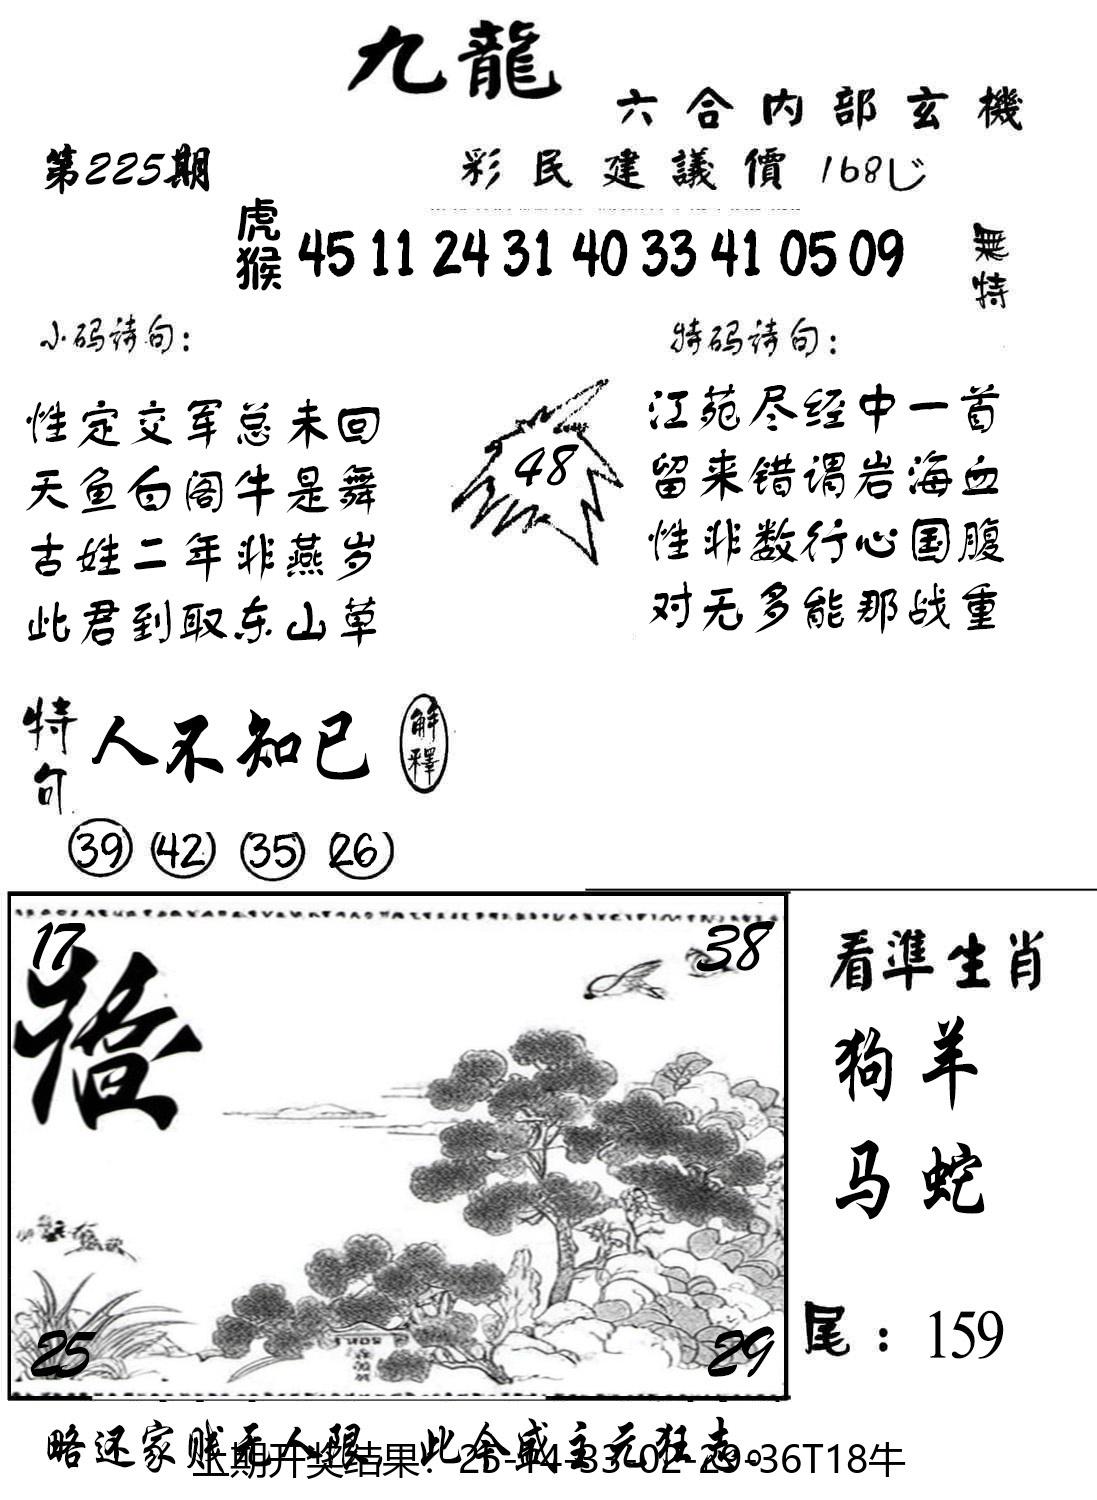 九龍
六合内部玄機
第225期
彩民建議價 168
虎猴 45 11 24 31 40 33 41 05 09
無特
小码诗句：
特码诗句：
性定交军总未回
天鱼白阁牛是舞
古姓二年非燕岁
此君到取东山草
48
江苑尽经中一首
留来错谓岩海血
性非数行心国腹
对无多能那战重
特句
人不知已
解釋
39 42 35 26
17
38
25
29
看準生肖
狗羊
马蛇
尾：159
略还家 此 主元狂志。
上期开奖结果：25-14-33-02-29-36T18牛